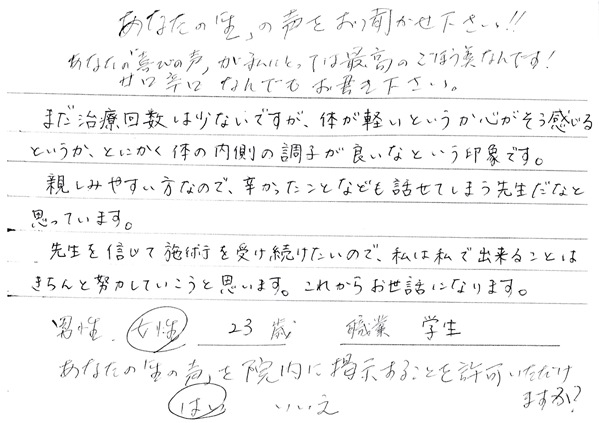 あなたの「生」の声をお聞かせ下さい!!
あなたの「喜びの声」が私にとっては最高のごほう美なんです!
甘口辛口 なんでもお書き下さい。
まだ治療回数は少ないですが、体が軽いというか心がそう感じる
というか、とにかく体の内側の調子が良いなという印象です。
親しみやすい方なので、辛かったことなども話せてしまう先生だなと
思っています。
先生を信じて施術を受け続けたいので、私は私で出来ることは
きちんと努力していこうと思います。これからお世話になります。
男性 女性 23 歳 職業 学生
あなたの「生の声」を院内に掲示することを許可いただけ
ますか?
はい いいえ